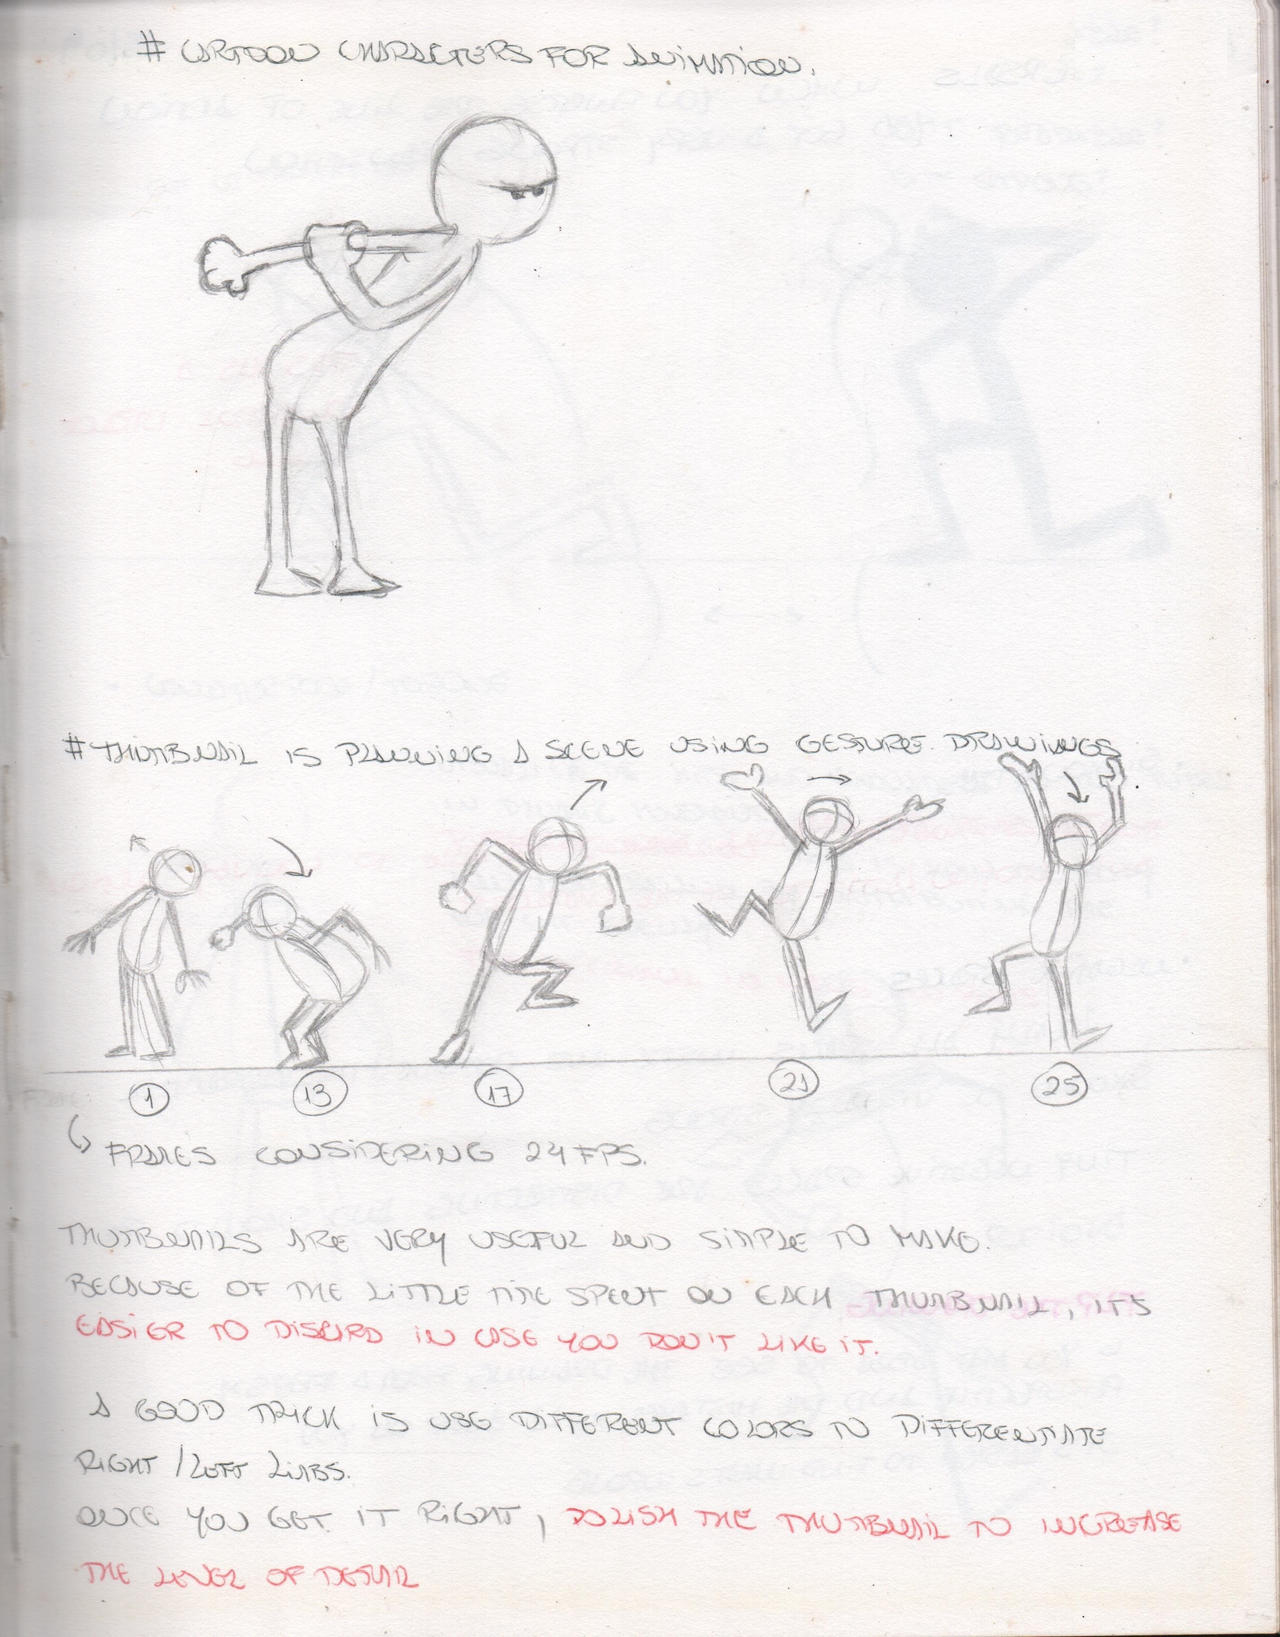 # CARTOON CHARACTERS FOR ANIMATION.
# THUMBNAIL IS PLANNING A SCENE USING GESTURE DRAWINGS
1 13 17 21 25
FRAMES CONSIDERING 24 FPS.
THUMBNAILS ARE VERY USEFUL AND SIMPLE TO MAKE.
BECAUSE OF THE LITTLE TIME SPENT ON EACH THUMBNAIL, IT'S
EASIER TO DISCARD IN CASE YOU DON'T LIKE IT.
A GOOD TRICK IS USE DIFFERENT COLORS TO DIFFERENTIATE
RIGHT / LEFT LIMBS.
ONCE YOU GET IT RIGHT, POLISH THE THUMBNAIL TO INCREASE
THE LEVEL OF DETAIL